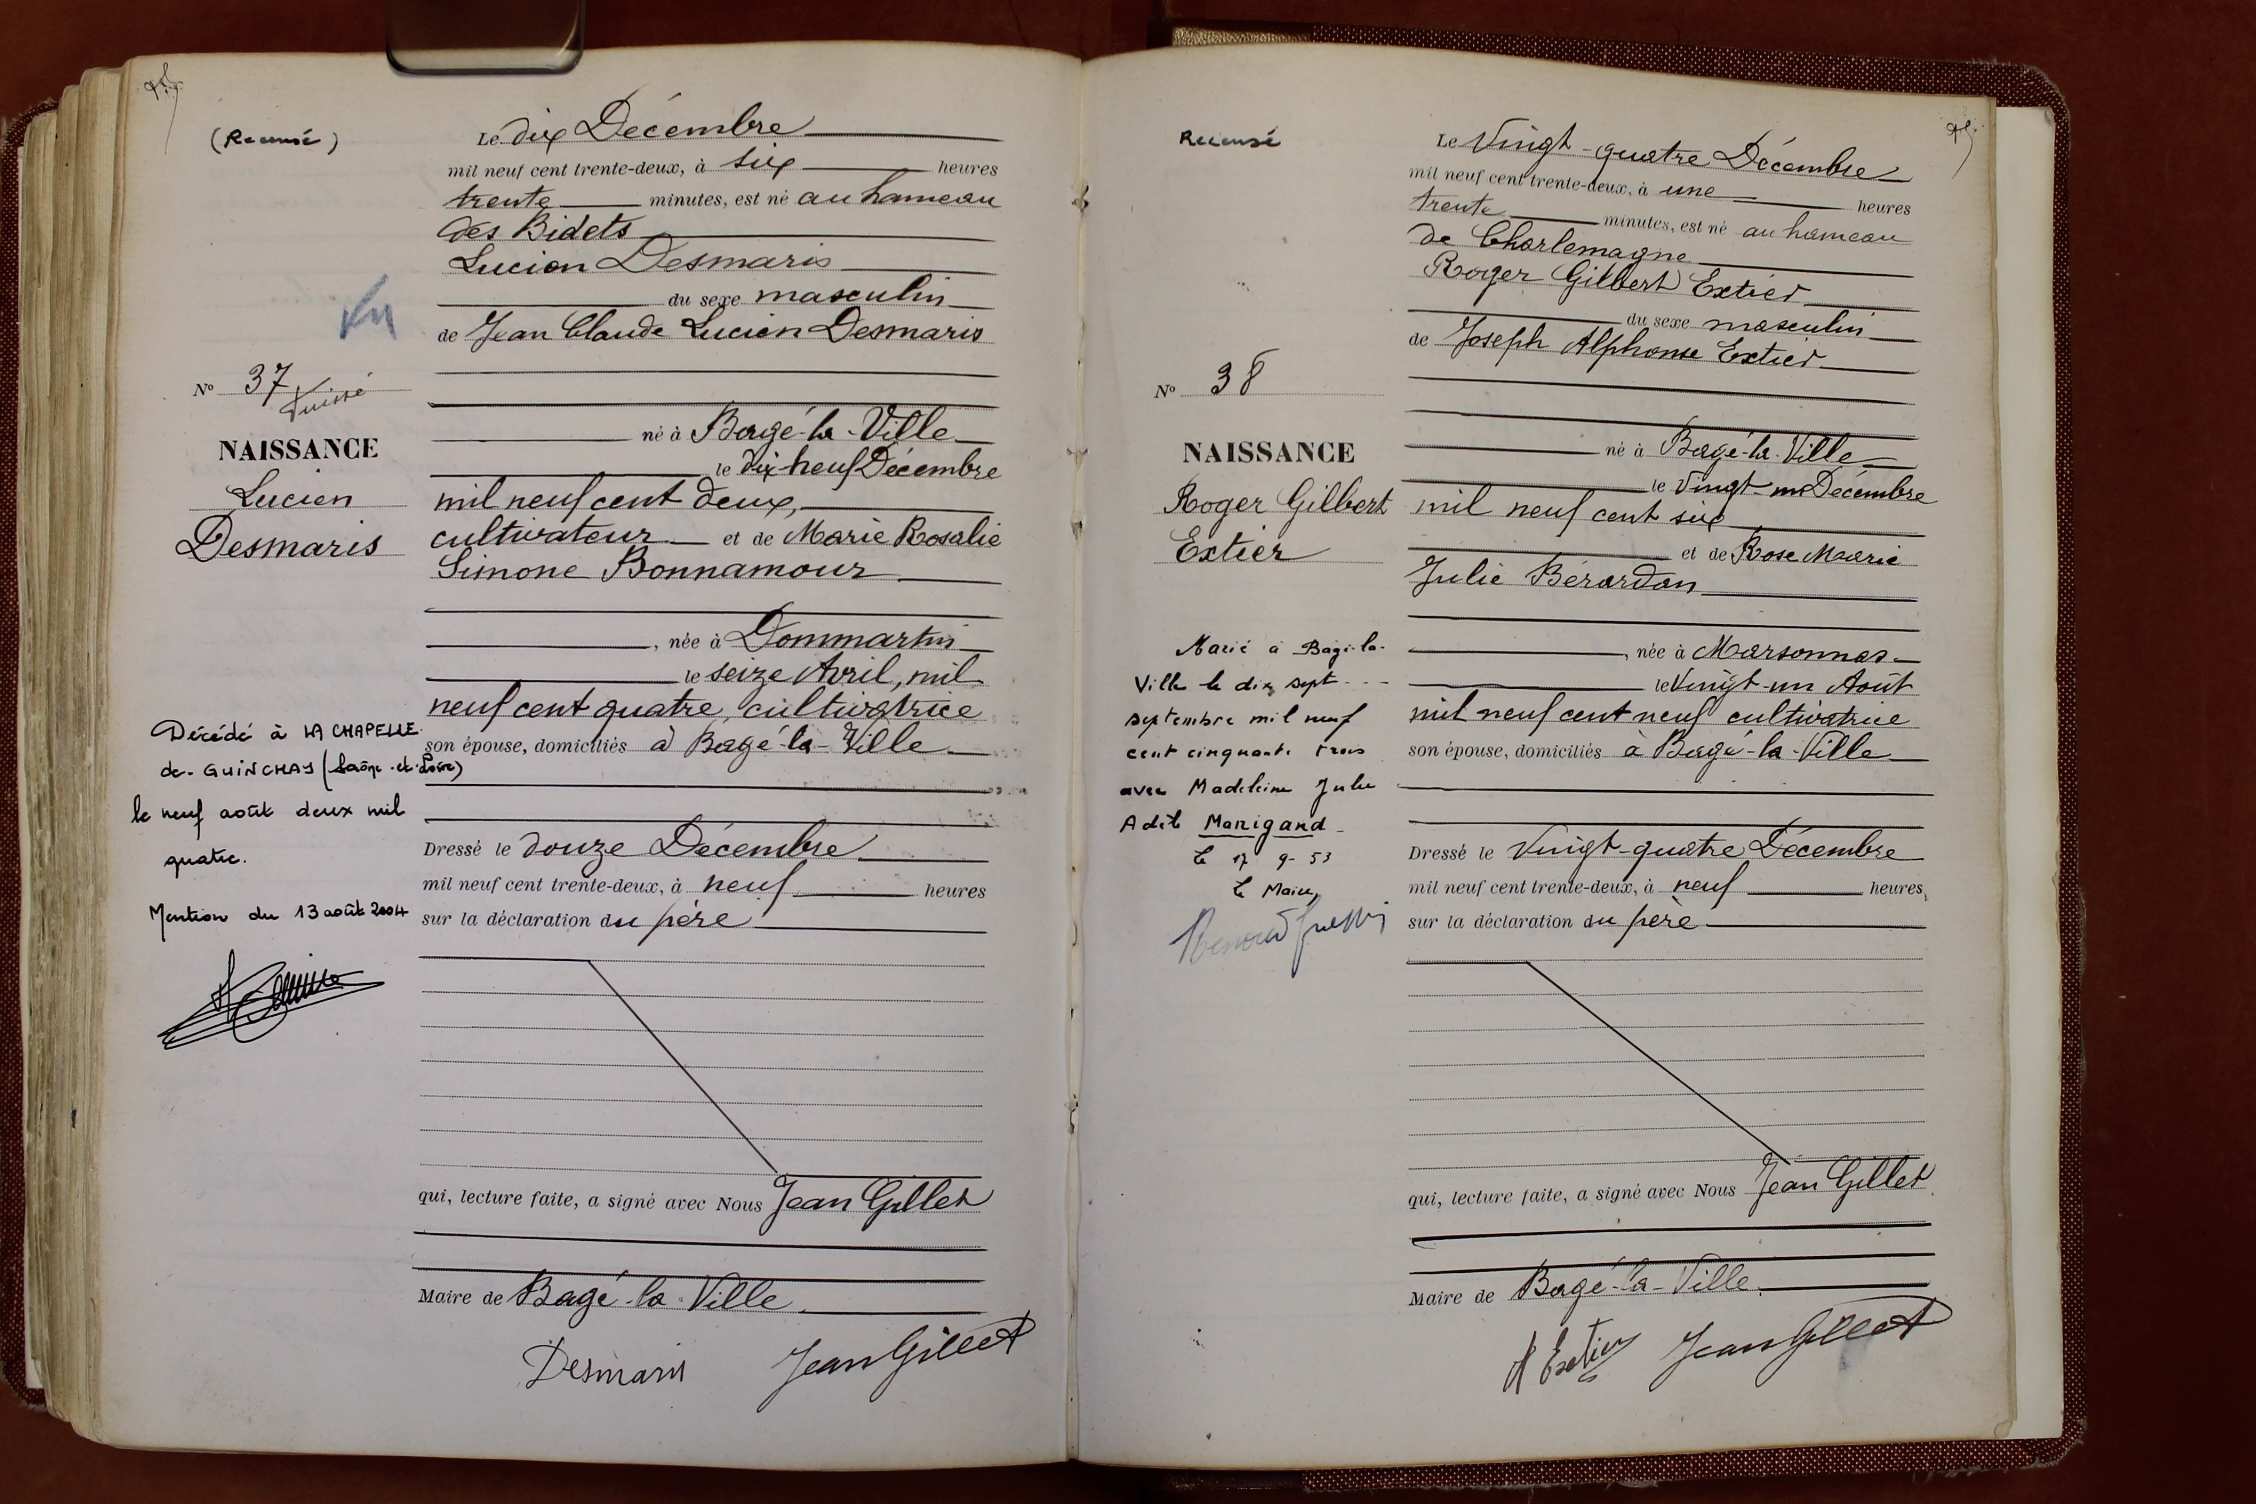 (Recensé)
Le dix Décembre
mil neuf cent trente-deux, à six heures
trente minutes, est né au hameau
des Bidets
Lucien Desmaris
du sexe masculin
de Jean Claude Lucien Desmaris
Vu
N° 37
né à Bagé-la-Ville
le dix-neuf Décembre
mil neuf cent deux,
cultivateur et de Marie Rosalie
Simone Bonnamour
NAISSANCE
Lucien
Desmaris
, née à Dommartin
le seize Avril, mil
neuf cent quatre, cultivatrice
son épouse, domiciliés à Bagé-la-Ville
Décédé à LA CHAPELLE
de-GUINCHAY (Saône-et-Loire)
le neuf août deux mil
quatre.
Mention du 13 août 2004
Dressé le douze Décembre
mil neuf cent trente-deux, à neuf heures
sur la déclaration du père
qui, lecture faite, a signé avec Nous Jean Gillet
Maire de Bagé-la-Ville
Desmaris Jean Gillet
Recensé
Le Vingt-quatre Décembre
mil neuf cent trente-deux, à une heures
trente minutes, est né au hameau
de Charlemagne
Roger Gilbert Extier
du sexe masculin
de Joseph Alphonse Extier
N° 38
né à Bagé-la-Ville
le Vingt-un Décembre
mil neuf cent six
et de Rose Marie
Julie Bérardan
NAISSANCE
Roger Gilbert
Extier
, née à Marsonnas
le Vingt-un Août
mil neuf cent neuf cultivatrice
son épouse, domiciliés à Bagé-la-Ville
Marié à Bagé-la-
Ville le dix sept
septembre mil neuf
cent cinquante trois
avec Madeleine Julie
Adèle Manigand
le 17 9-53
le Maire,
Dressé le Vingt-quatre Décembre
mil neuf cent trente-deux, à neuf heures,
sur la déclaration du père
qui, lecture faite, a signé avec Nous Jean Gillet
Maire de Bagé-la-Ville
Extier Jean Gillet